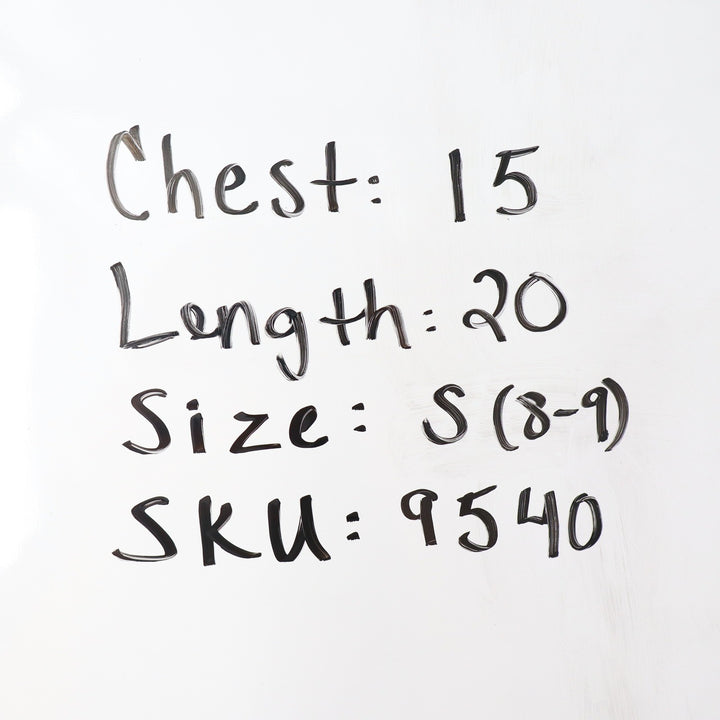 Chest: 15
Length: 20
Size: S (8-9)
SKU: 9540